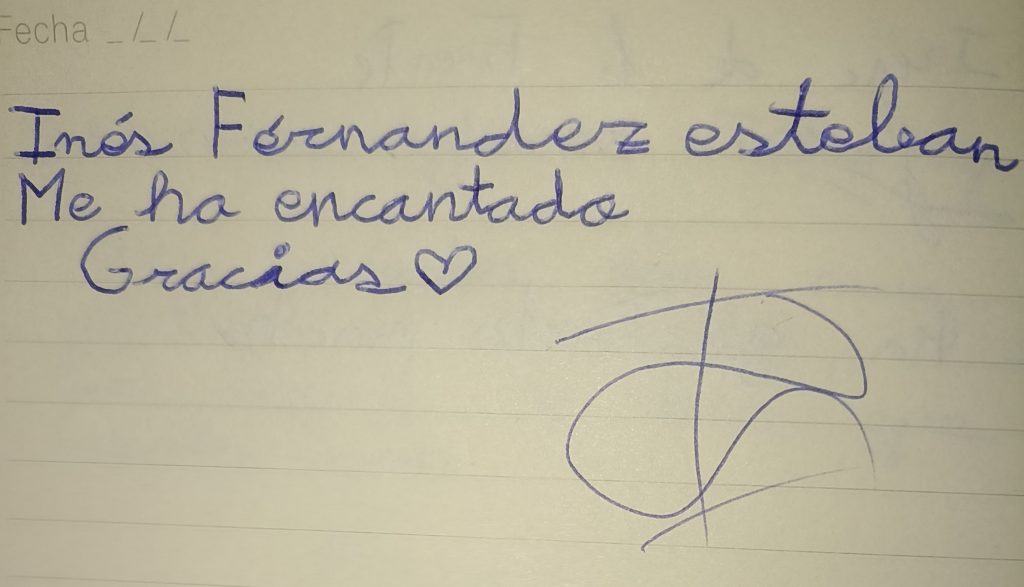 Fecha _/_/_
Inés Férnandez esteban
Me ha encantado
Gracias ♡